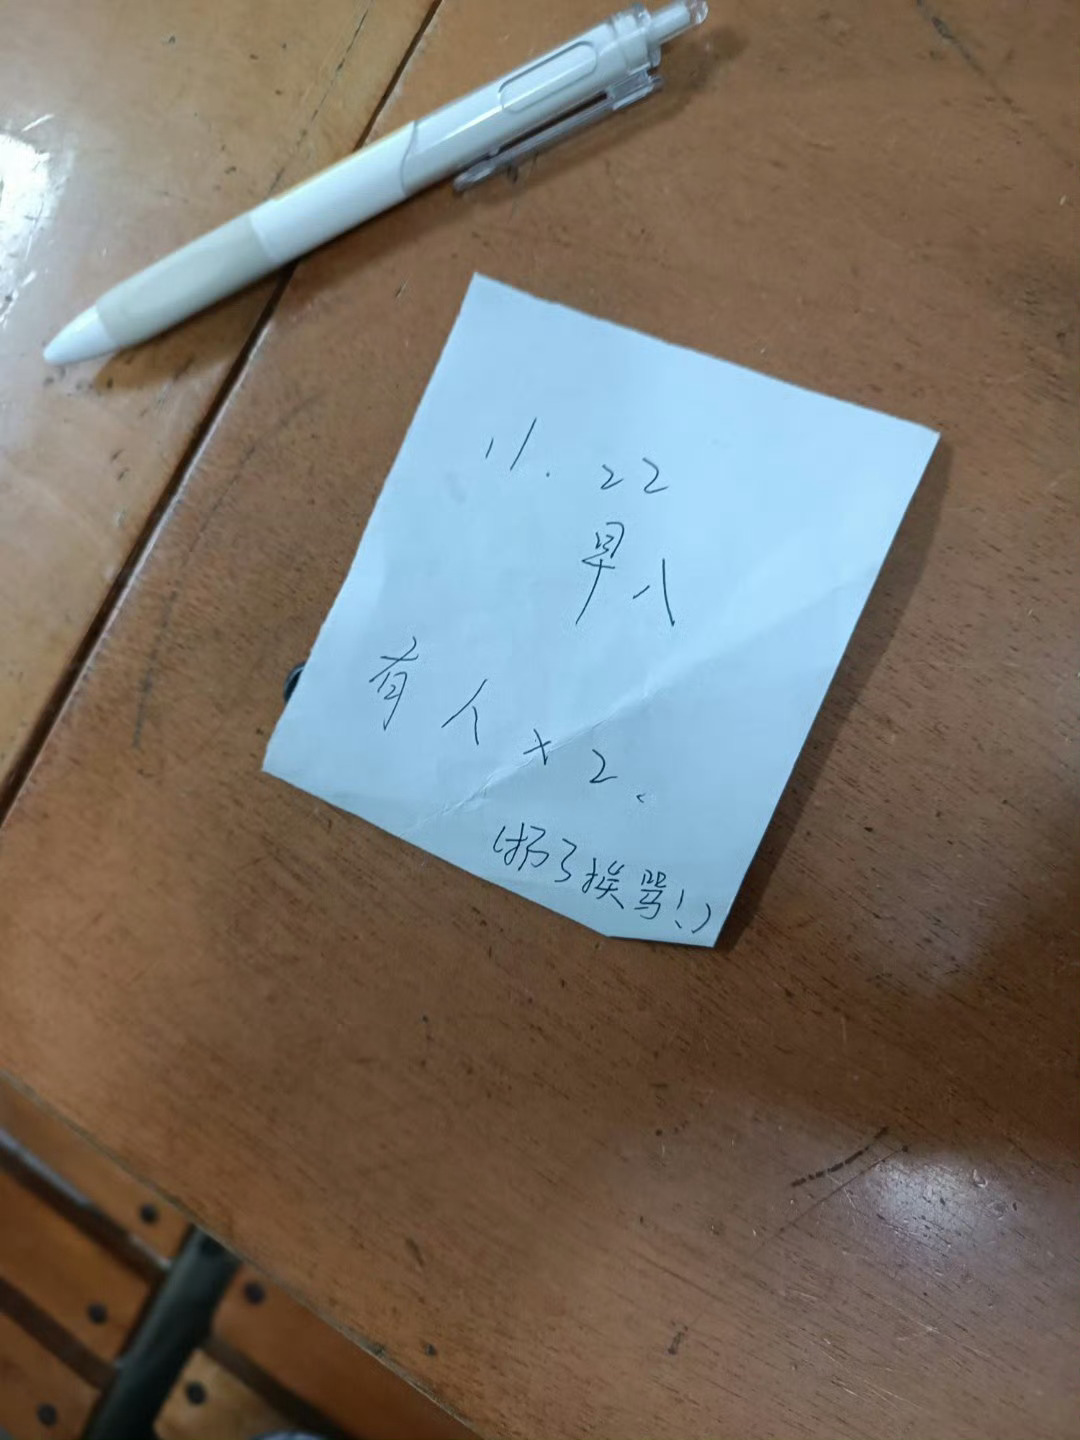 11.22
早八
有人×2.
(扔了挨骂!)